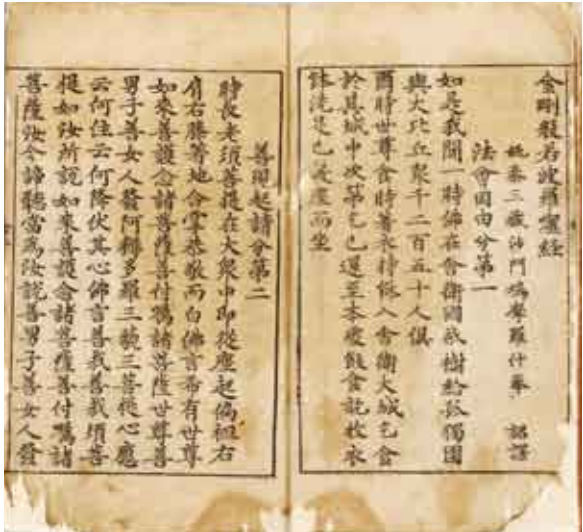 金剛般若波羅蜜經
姚秦三藏沙門鳩摩羅什奉 詔譯
法會因由分第一
如是我聞一時佛在舍衛國祇樹給孤獨園
與大比丘眾千二百五十人俱
爾時世尊食時著衣持鉢入舍衛大城乞食
於其城中次第乞已還至本處飯食訖收衣
鉢洗足已敷座而坐
善現起請分第二
時長老須菩提在大眾中即從座起偏袒右
肩右膝著地合掌恭敬而白佛言希有世尊
如來善護念諸菩薩善付囑諸菩薩世尊善
男子善女人發阿耨多羅三藐三菩提心應
云何住云何降伏其心佛言善哉善哉須菩
提如汝所說如來善護念諸菩薩善付囑諸
菩薩汝今諦聽當為汝說善男子善女人發